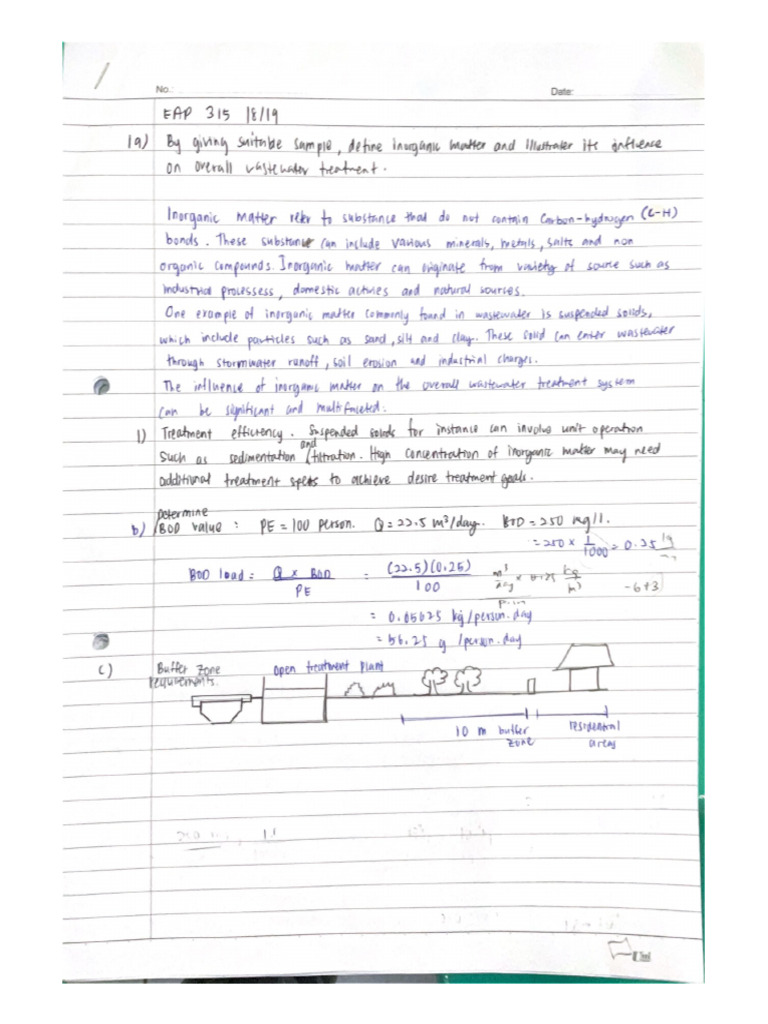 No.: Date:
EAP 315 18/19
1a) By giving suitable sample, define inorganic matter and illustrater its influence
on overall wastewater treatment.
Inorganic matter refer to substance that do not contain Carbon-hydrogen (C-H)
bonds. These substance can include various minerals, metals, salts and non
organic compounds. Inorganic matter can originate from variety of source such as
industrial processess, domestic activies and natural sourses.
One example of inorganic matter commonly found in wastewater is suspended solids,
which include particles such as sand, silt and clay. These solid can enter wastewater
through stormwater runoff, soil erosion and industrial charges.
The influence of inorganic matter on the overall wastewater treatment system
can be significant and multifaceted:
1) Treatment efficiency. Suspended solids for instance can involve unit operation
such as sedimentation and filtration. High concentration of inorganic matter may need
additional treatment to achieve desire treatment goals.
Determine
b) BOD value : PE = 100 person. Q = 22.5 m³/day. BOD = 250 mg/l.
= 250 × 1/1000 = 0.25 kg
BOD load = Q × BOD / PE = (22.5)(0.25) / 100 m³/day × 0.25 kg/m³ -6+3
= 0.05625 kg/person.day
= 56.25 g/person.day
c) Buffer Zone Open treatment plant
requirements.
10 m buffer residential
zone areas